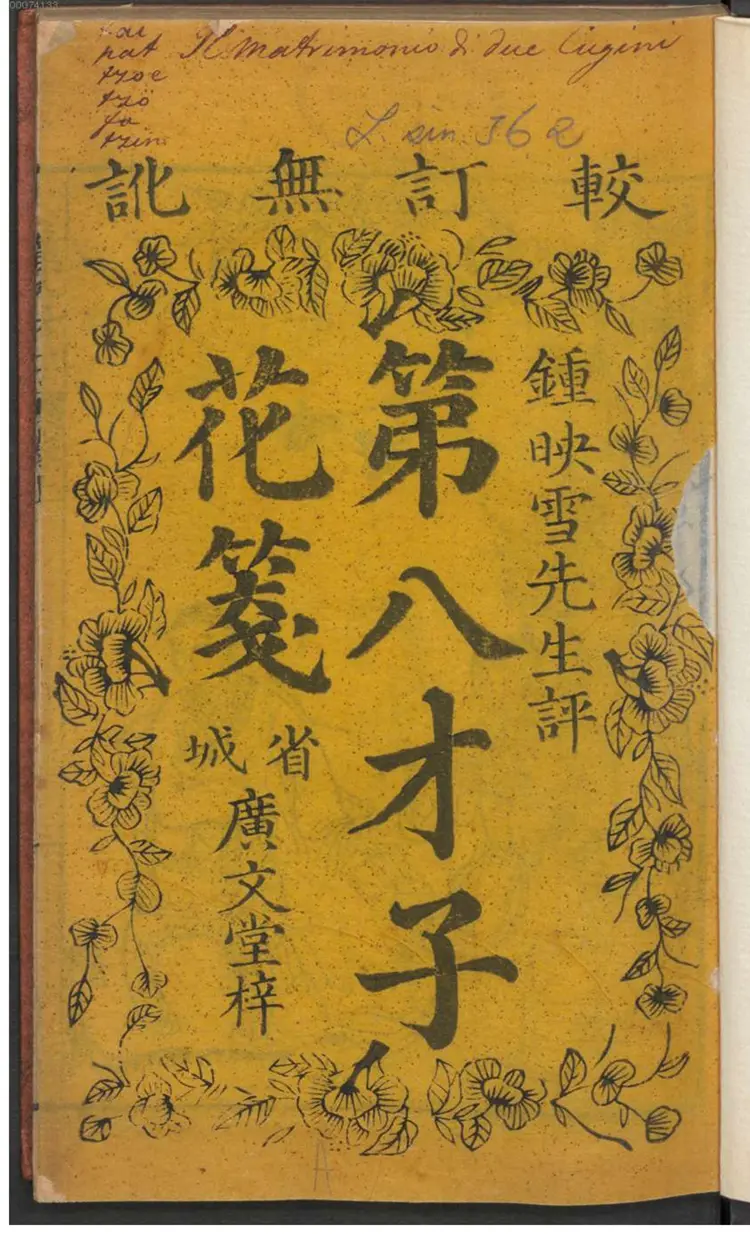 00074133
tai
pat
tzoe
tzö
fa
tzin
Il Matrimonio di due Cugini
L. sin. J 62
較訂無訛
鍾映雪先生評
第八才子
花箋
省城
廣文堂梓
A